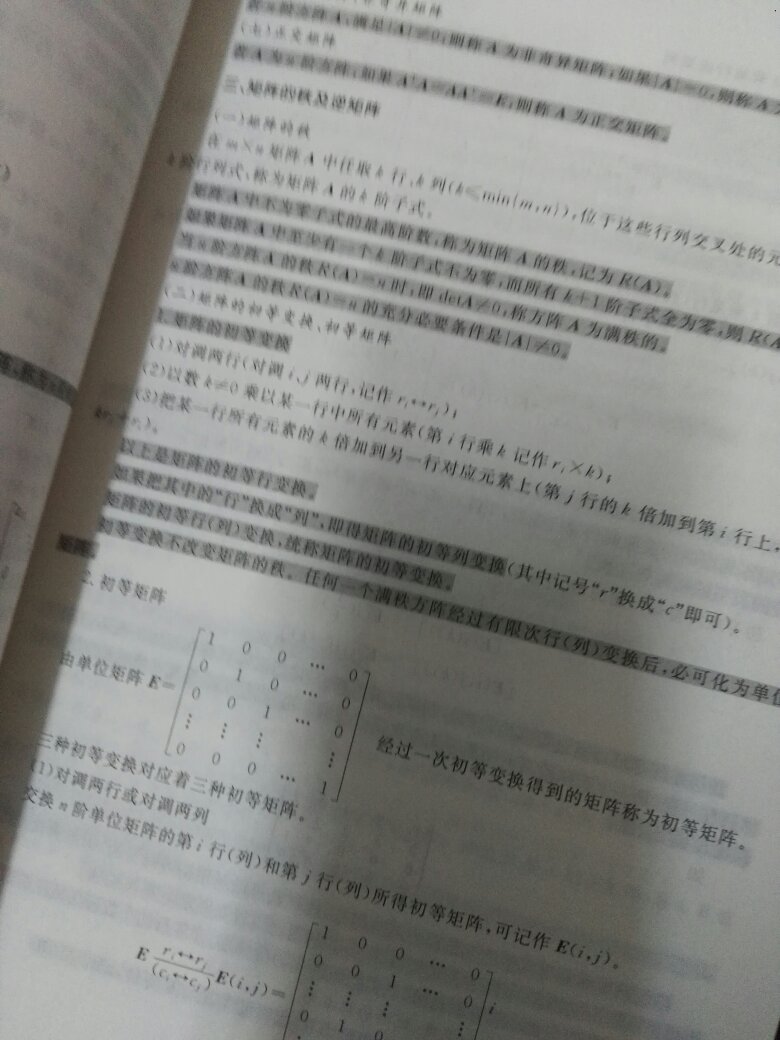 在 n 阶方阵 A，满足|A|≠0，则称 A 为非奇异矩阵；如果|A|=0，则称 A
(七)正交矩阵
设 A 为 n 阶方阵，如果 A'A=AA'=E，则称 A 为正交矩阵。
三、矩阵的秩及逆矩阵
(一)矩阵的秩
在 m×n 矩阵 A 中任取 k 行、k 列(k≤min{m,n})，位于这些行列交叉处的元
k 阶行列式，称为矩阵 A 的 k 阶子式。
矩阵 A 中不为零子式的最高阶数，称为矩阵 A 的秩，记为 R(A)。
如果矩阵 A 中至少有一个 k 阶子式不为零，而所有 k+1 阶子式全为零，则 R(A
当 n 阶方阵 A 的秩 R(A)=n 时，即 detA≠0，称方阵 A 为满秩的。
n 阶方阵 A 的秩 R(A)=n 的充分必要条件是|A|≠0。
(二)矩阵的初等变换、初等矩阵
1. 矩阵的初等变换
(1)对调两行(对调 i,j 两行，记作 rᵢ↔rⱼ)；
(2)以数 k≠0 乘以某一行中所有元素(第 i 行乘 k 记作 rᵢ×k)；
(3)把某一行所有元素的 k 倍加到另一行对应元素上(第 j 行的 k 倍加到第 i 行上，
以上是矩阵的初等行变换。
如果把其中的“行”换成“列”，即得矩阵的初等列变换(其中记号“r”换成“c”即可)。
矩阵的初等行(列)变换，统称矩阵的初等变换。
初等变换不改变矩阵的秩。任何一个满秩方阵经过有限次行(列)变换后，必可化为单位
矩阵。
2. 初等矩阵
由单位矩阵 E= 经过一次初等变换得到的矩阵称为初等矩阵。
1 0 0 … 0
0 1 0 … 0
0 0 1 … 0
⋮ ⋮ ⋮ ⋮
0 0 0 … 1
三种初等变换对应着三种初等矩阵。
(1)对调两行或对调两列
交换 n 阶单位矩阵的第 i 行(列)和第 j 行(列)所得初等矩阵，可记作 E(i,j)。
E rᵢ↔rⱼ (cᵢ↔cⱼ) E(i,j)=
1 0 0 … 0
0 0 1 … 0 i
⋮ ⋮ ⋮ ⋮
0 1 0